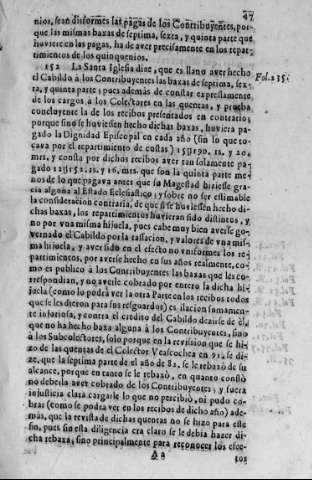 47
nios, sean disformes las pagas de los Contribuyentes, por-
que las mismas baxas de septima, sexta, y quinta parte que
huviere en las pagas, ha de aver precisamente en los repar-
timientos de los quinquenios.
152 La Santa Iglesia dize, que es llano aver hecho
el Cabildo à los Contribuyentes las baxas de septima, sex-
ta, y quinta parte; pues además de constar expressamente
de los cargos à los Colectores en las quentas, y prueba
concluyente la de los recibos presentados en contrario;
porque sino se huviessen hecho dichas baxas, huviera pa-
gado la Dignidad Episcopal en cada año (sin lo que to-
cava por el repartimiento de costas) rs. y
mrs. y consta por dichos recibos aver tan solamente pa-
gado rs. y 16. mrs. que son la quinta parte me-
nos de lo que pagava antes que su Magestad hiziesse gra-
cia alguna al Estado Eclesiastico; y sobre no ser estimable
la consideracion contraria, de que si se huviessen hecho di-
chas baxas, los repartimientos huvieran sido distintos, y
no por una misma hijuela, pues cabe muy bien averse go-
vernado el Cabildo por la tassacion, y valores de una mis-
ma hijuela, y aver sido en el efecto no uniformes los re-
partimientos, por averse hecho en sus años realmente, co-
mo es publico à los Contribuyentes las baxas que les co-
rrespondian, y no averle cobrado por entero la dicha hi-
juela (como lo podrà ver la otra Parte en los recibos todos
que se les dieron para sus resguardos) es ilacion sumamen-
te injuriosa, y contra el credito del Cabildo dezirse de èl,
que no ha hecho baxa alguna à los Contribuyentes, sino
à los Subcolectores, solo porque en la revission que se hi-
zo de las quentas del Colector Vescochea en 91. se di-
ze, que la septima parte de el año de 82. se le rebaxò de su
alcance, porque en tanto se le rebaxò, en quanto constò
no deberla aver cobrado de los Contribuyentes; y fuera
injusticia clara cargarle lo que no percibiò, ni pudo co-
brar (como se podrà ver en los recibos de dicho año) ade-
màs, que la revista de dichas quentas no se hizo para este
fin, pues sin esta diligencia era claro se le debia hazer di-
cha rebaxa; sino principalmente para reconocer los efec-
Aa
tos
Fol. 235.